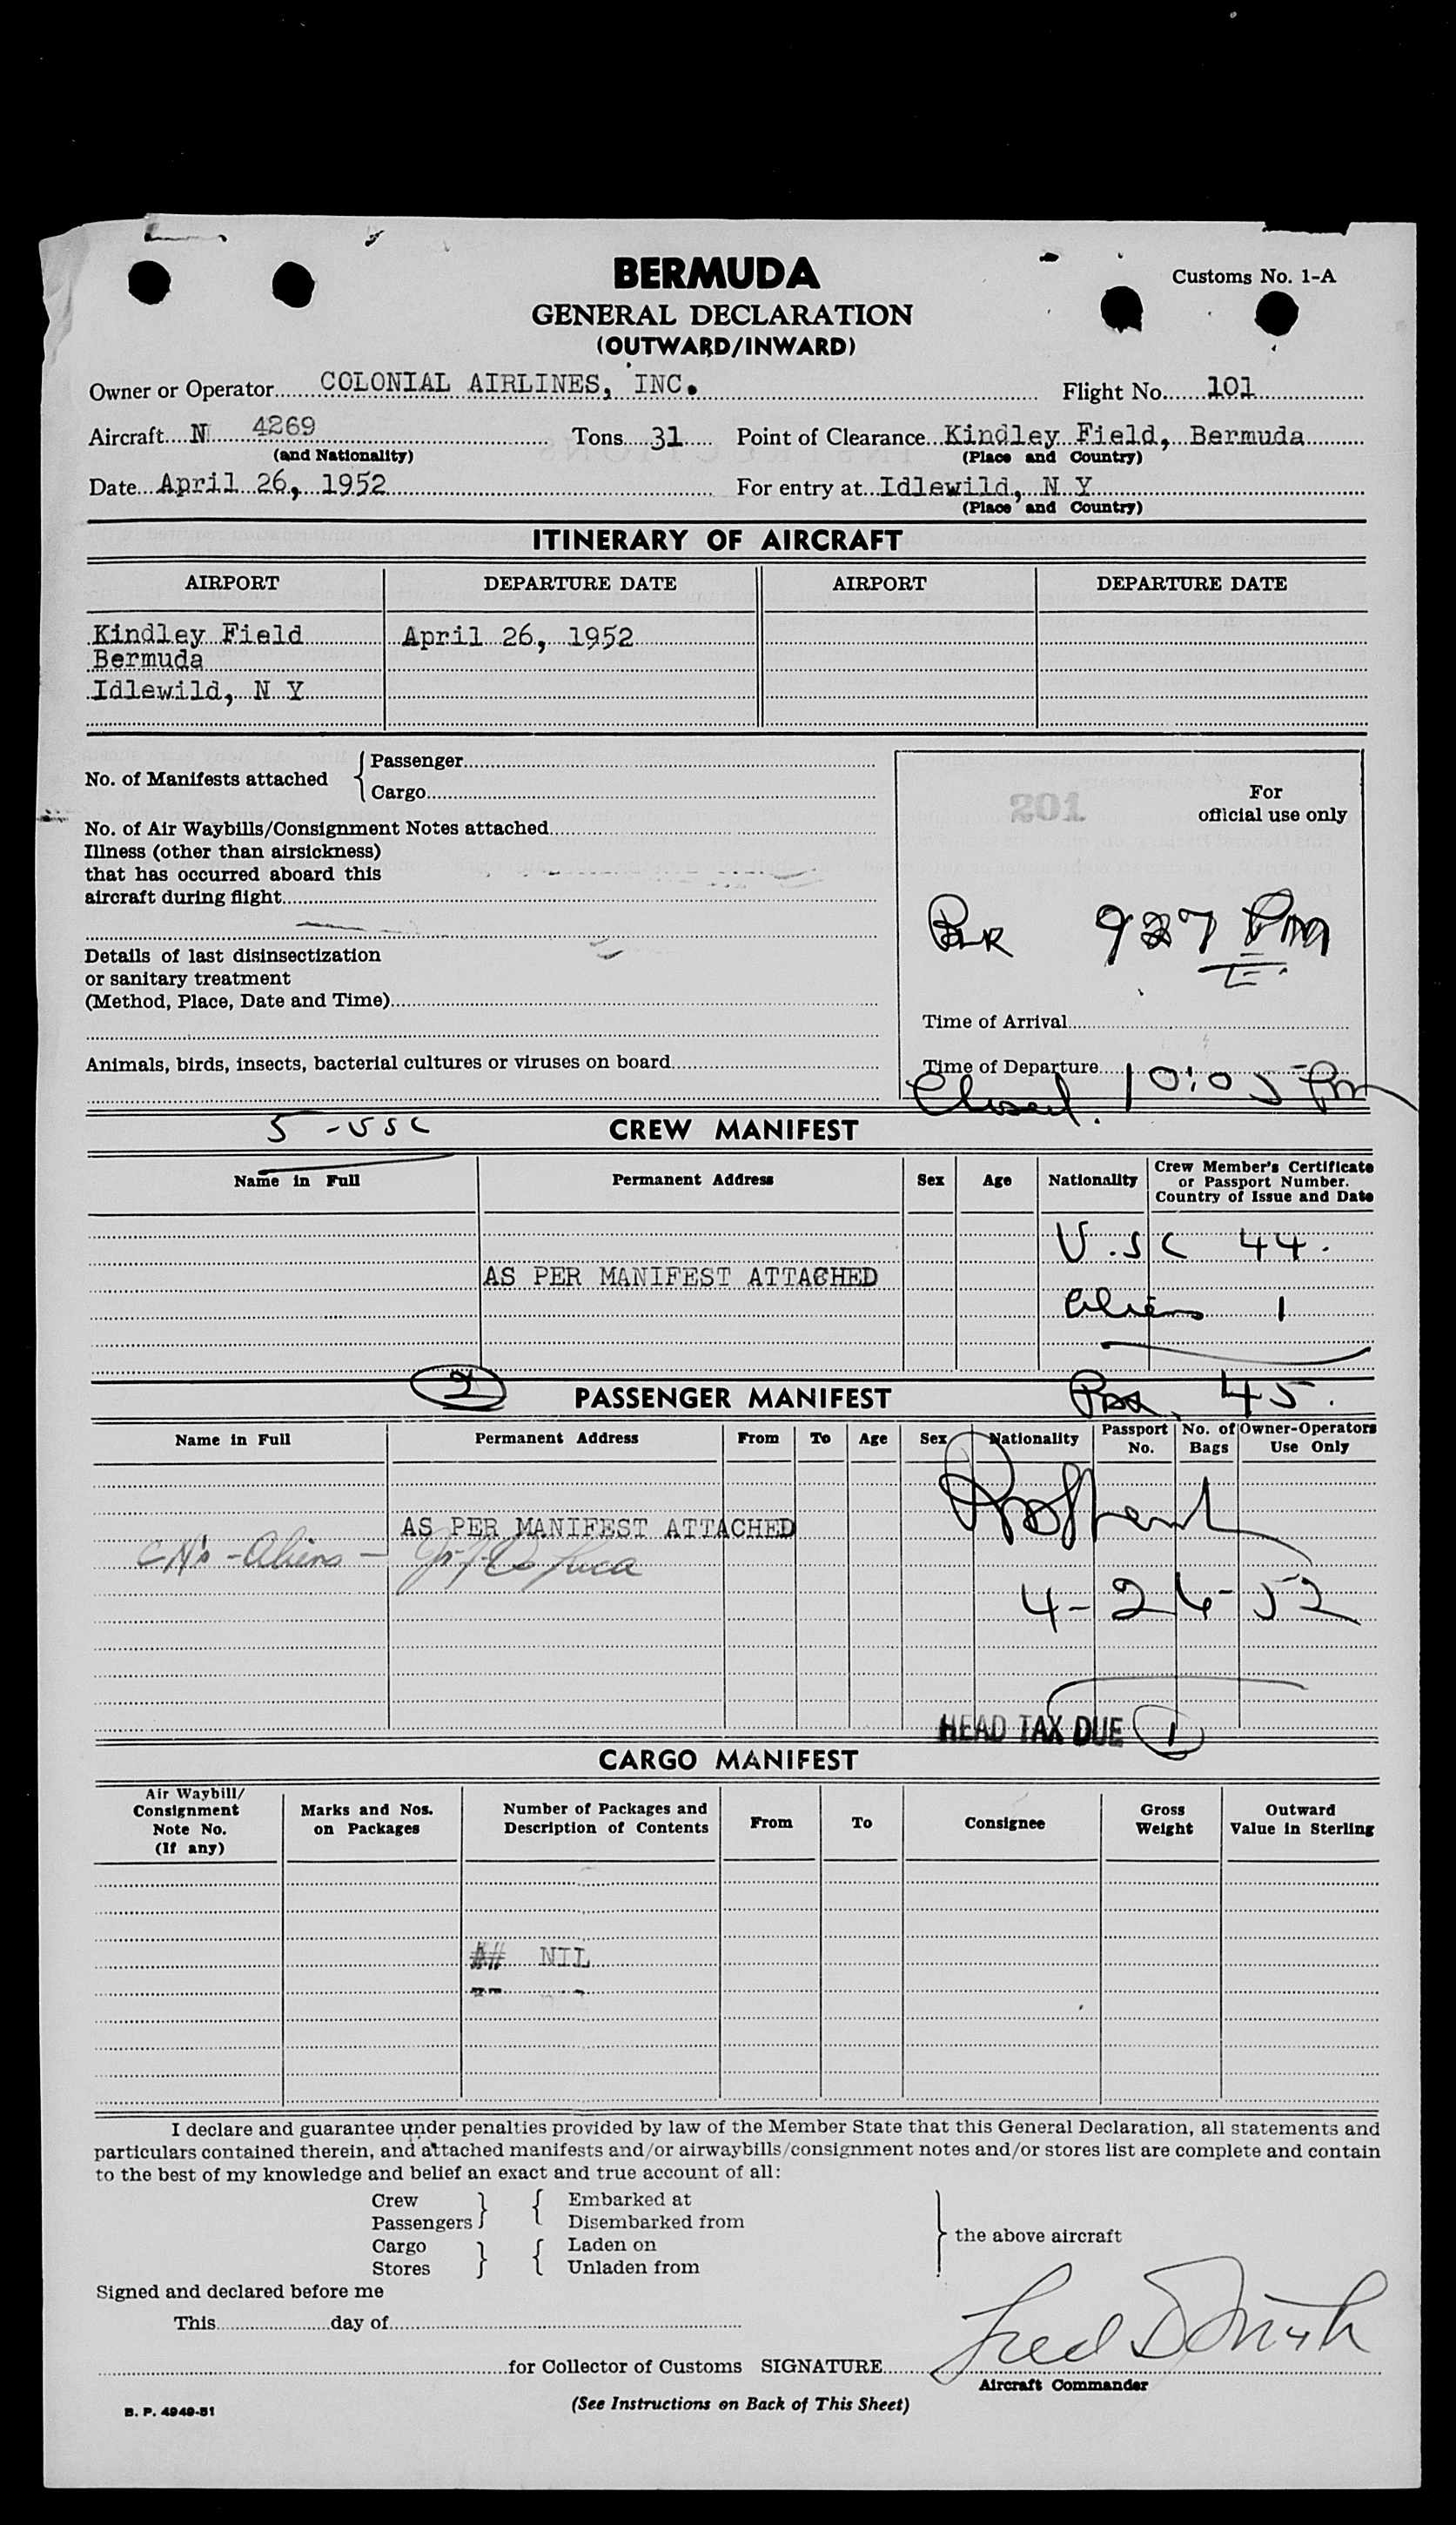 BERMUDA
Customs No. 1-A
GENERAL DECLARATION
(OUTWARD/INWARD)
Owner or Operator COLONIAL AIRLINES, INC. Flight No. 101
Aircraft N 4269 Tons 31 Point of Clearance Kindley Field, Bermuda
(and Nationality) (Place and Country)
Date April 26, 1952 For entry at Idlewild, N Y
(Place and Country)
ITINERARY OF AIRCRAFT
AIRPORT DEPARTURE DATE AIRPORT DEPARTURE DATE
Kindley Field April 26, 1952
Bermuda
Idlewild, N Y
No. of Manifests attached { Passenger
Cargo
201
For
official use only
No. of Air Waybills/Consignment Notes attached
Illness (other than airsickness)
that has occurred aboard this
aircraft during flight
927 Pm
Details of last disinsectization
or sanitary treatment
(Method, Place, Date and Time)
Time of Arrival
Animals, birds, insects, bacterial cultures or viruses on board
Time of Departure
Closed. 10:05 Pm
5 - USC
CREW MANIFEST
Name in Full Permanent Address Sex Age Nationality Crew Member's Certificate
or Passport Number.
Country of Issue and Date
U.SC 44.
AS PER MANIFEST ATTACHED
Aliens 1
2
PASSENGER MANIFEST
Pax 45.
Name in Full Permanent Address From To Age Sex Nationality Passport No. No. of Bags Owner-Operators Use Only
AS PER MANIFEST ATTACHED
CN's - Aliens -
4-26-52
HEAD TAX DUE 1
CARGO MANIFEST
Air Waybill/
Consignment
Note No.
(If any)
Marks and Nos.
on Packages
Number of Packages and
Description of Contents
From
To
Consignee
Gross
Weight
Outward
Value in Sterling
NIL
I declare and guarantee under penalties provided by law of the Member State that this General Declaration, all statements and
particulars contained therein, and attached manifests and/or airwaybills/consignment notes and/or stores list are complete and contain
to the best of my knowledge and belief an exact and true account of all:
Crew Embarked at
Passengers Disembarked from
the above aircraft
Cargo Laden on
Stores Unladen from
Signed and declared before me
This day of
Fred D Smith
for Collector of Customs SIGNATURE
Aircraft Commander
(See Instructions on Back of This Sheet)
B. P. 4949-51